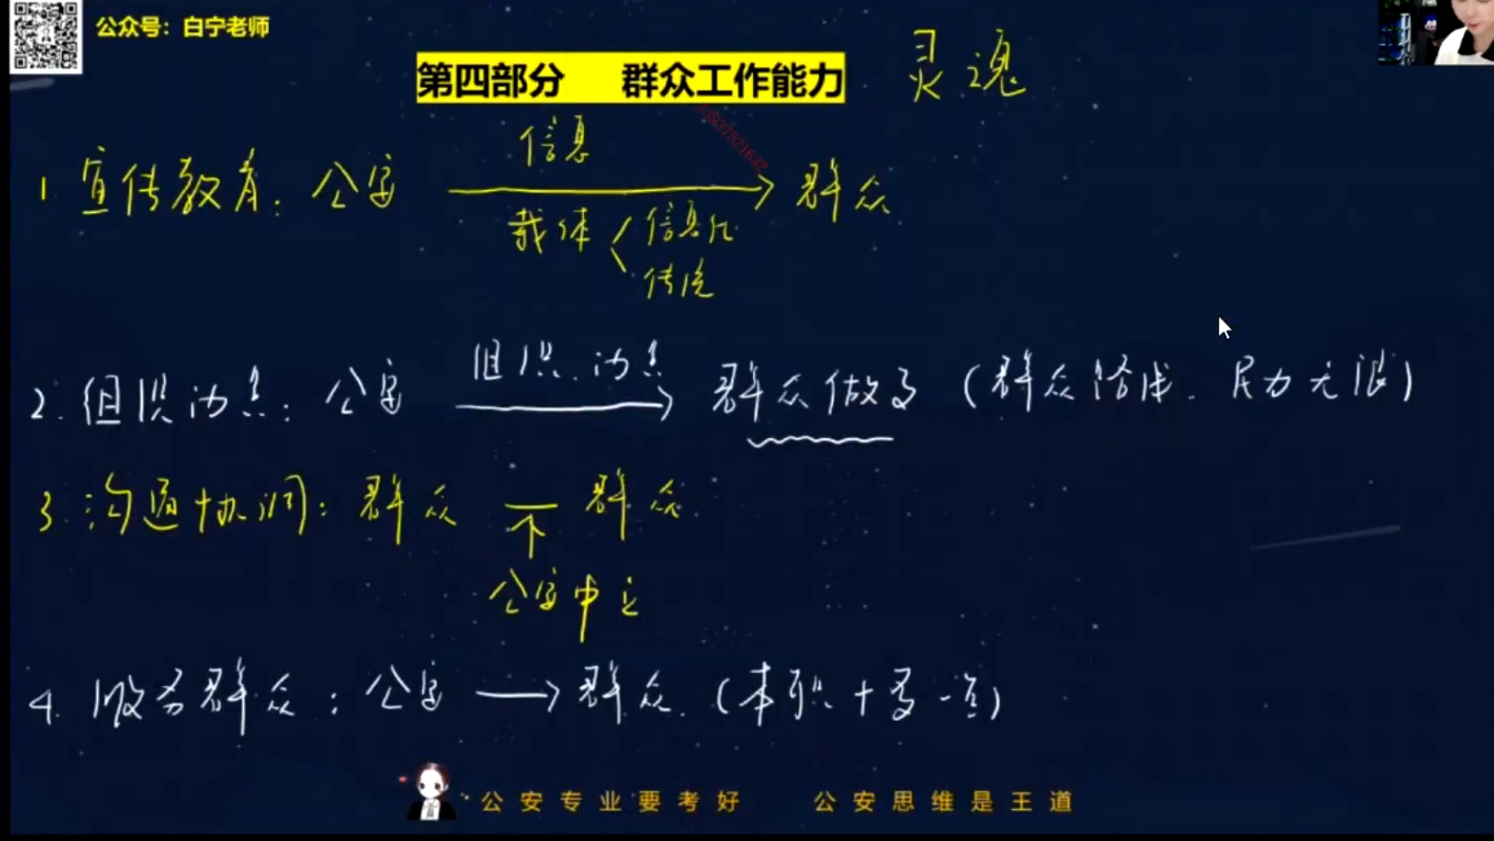 公众号：白宁老师
第四部分 群众工作能力 灵魂
信息
1 宣传教育：公安 群众
载体 信息化
传统
组织、动员
2. 组织动员：公安 群众做事（群众路线、民力无限）
3. 沟通协调：群众 群众
公安中立
4. 服务群众：公安 群众（本职+多一点）
公安专业要考好 公安思维是王道